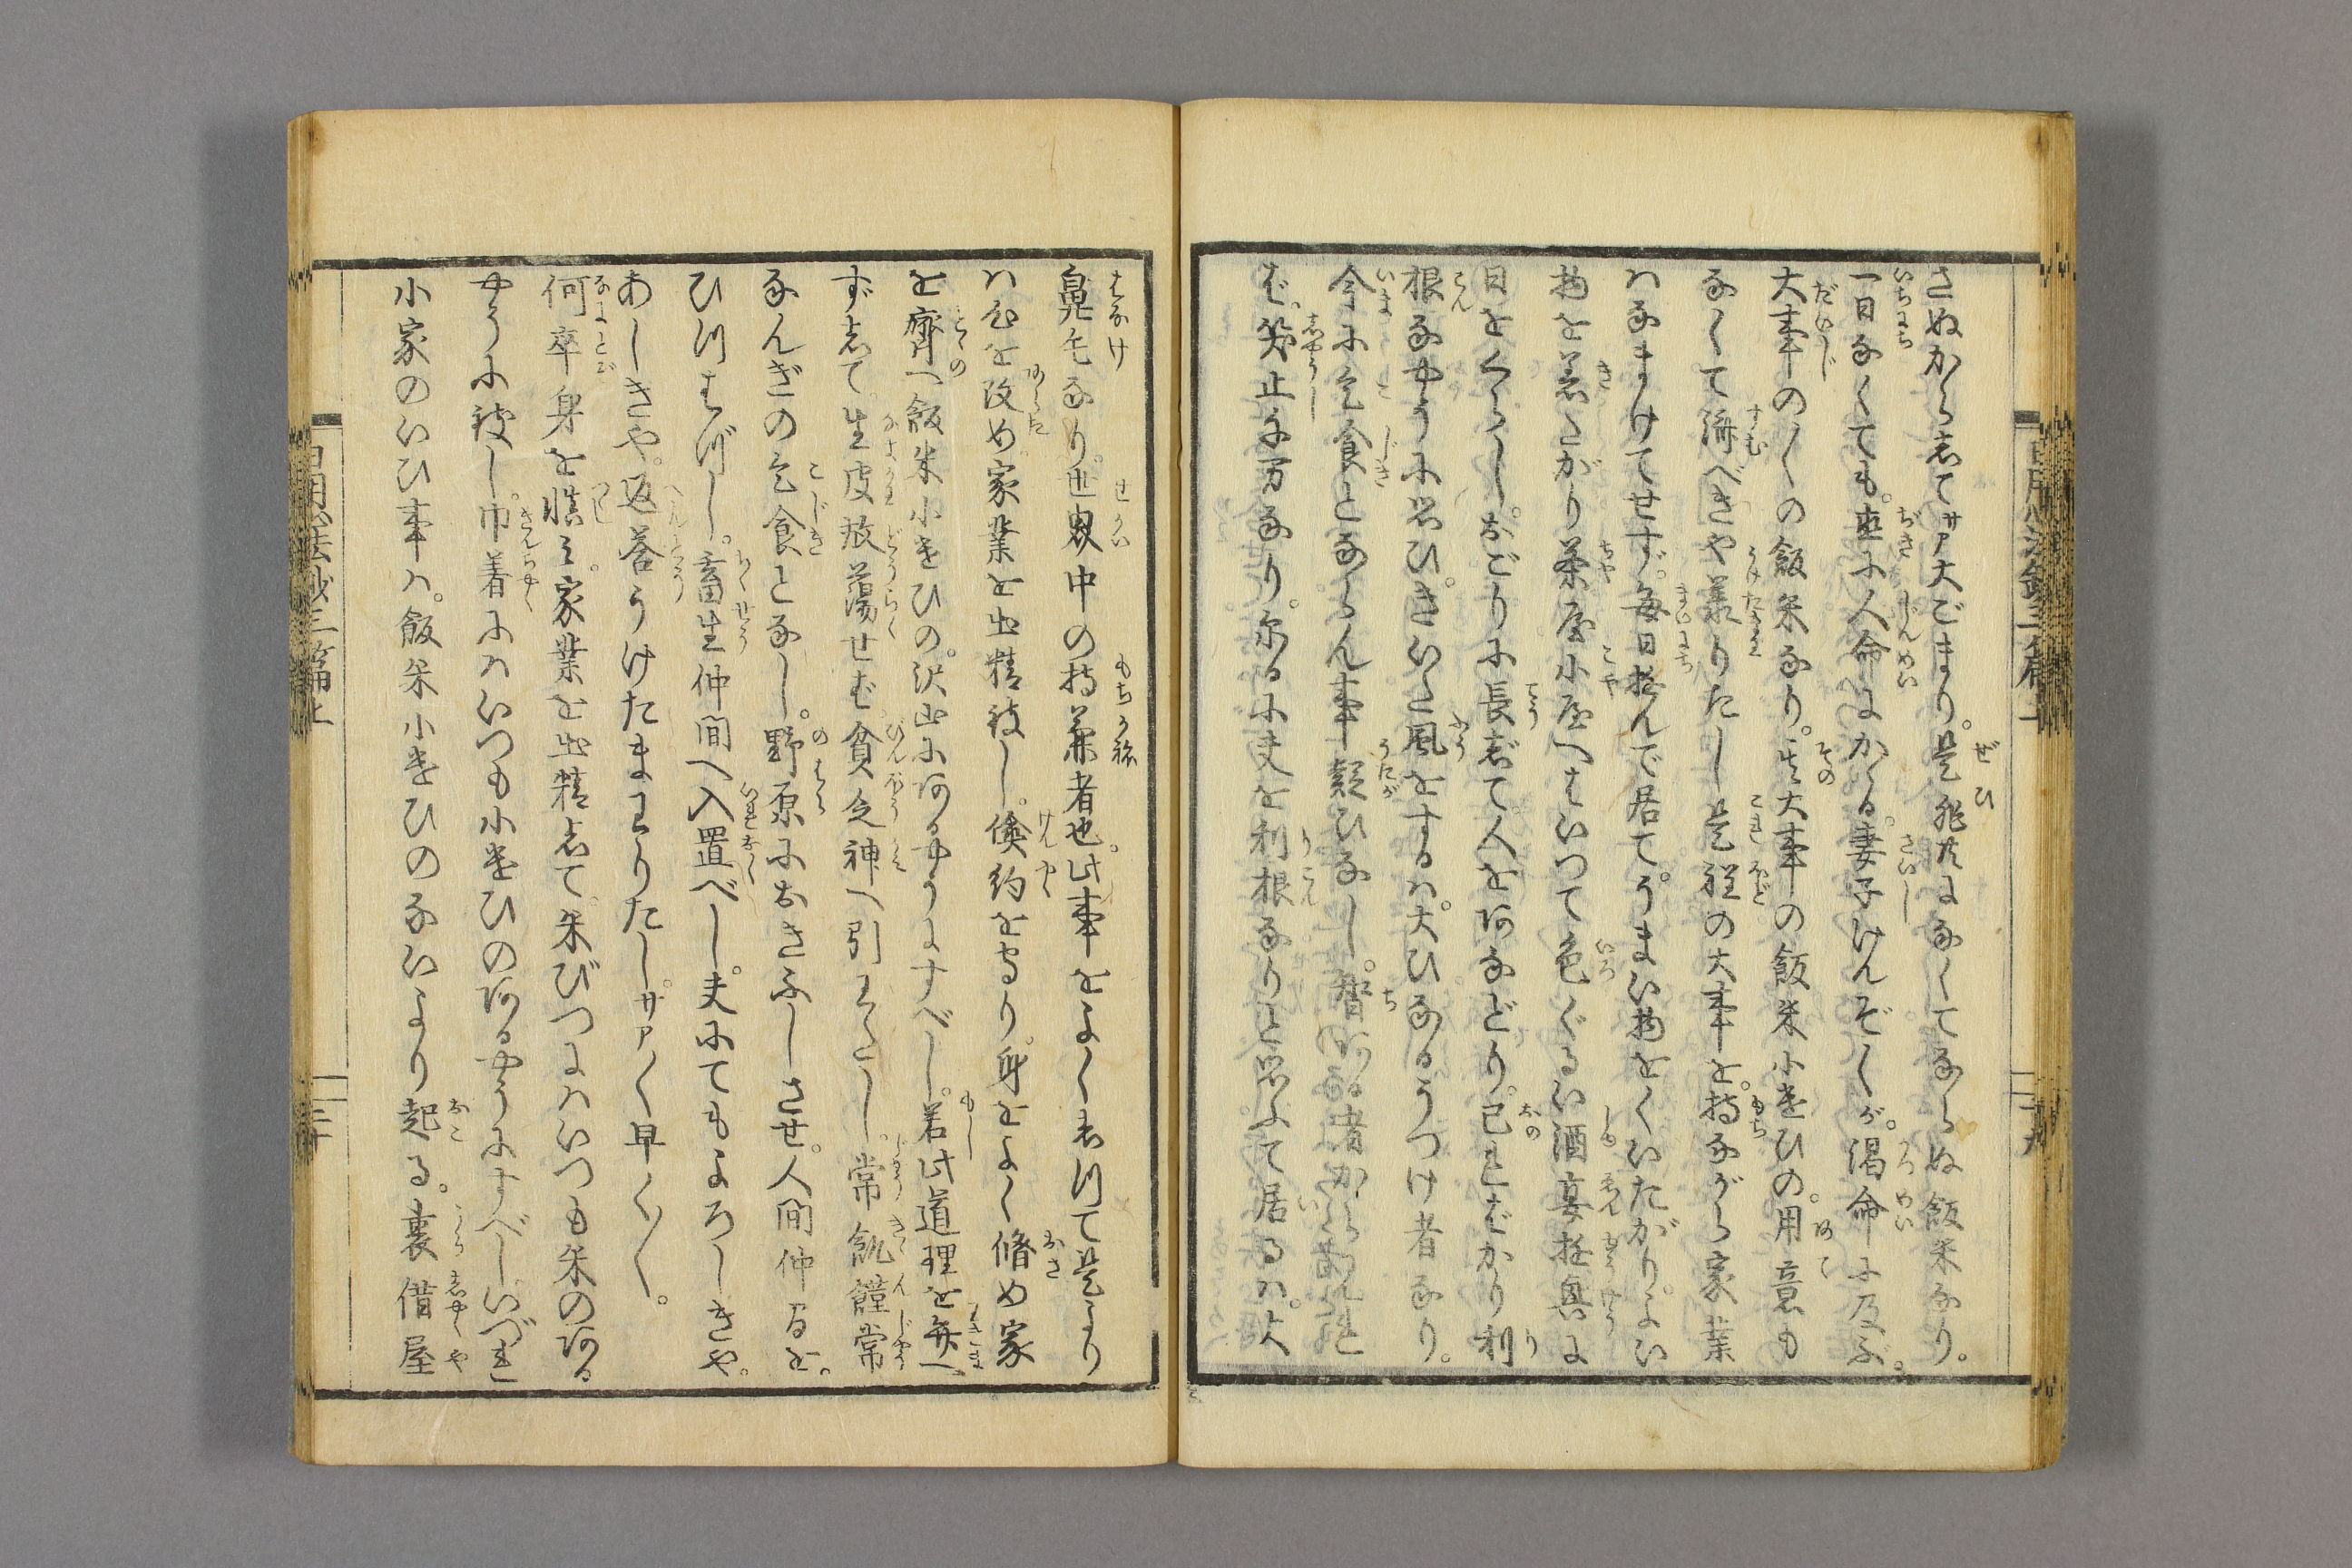 さぬから志てサア大ごまり。是非共になくてならぬ飯米なり。
一日なくても。直に人命にかゝる。妻子けんぞくが。渇命に及ぶ。
大事の〳〵の飯米なり。其大事の飯米小遣ひの。用意も
なくて済べきや義りたし是程の大事を。持ながら家業
ハなまけてせず。毎日遊んで居て。うまい物をくいたがり。よい
物を着たがり茶屋小屋へはいつて色ぐるい酒宴遊興に
日をくらし。おごりに長志て。人をあなどり。己ればかり利
根なやうに思ひ。きいた風をするハ。大ひなるうつけ者なり。
今に乞食とならん事疑ひなし。智ある者から見れ
ば。笑止千万なり。尓るに夫を利根なりと思ふて居るハ。大
鼻毛なり。世界中の持兼者也。此事をよく志つて是より
ハ心を改め家業を出精致し。倹約を守り。身をよく脩め家
を齊へ飯米小遣ひの。沢山にあるやうにすべし。若此道理を弁へ
ず志て。生皮放蕩せば。貧乏神へ引わたし。常飢饉常
なんぎの乞食となし。野原におきふしさせ。人間仲間を。
ひつはづし。畜生仲間へ入置べし。夫にてもよろしきや。
あしきや。返答うけたまわりたし。サア〳〵早く〳〵。
何卒身を慎ミ。家業を出精志て。米びつにハいつも米のある
やうに致し。巾着にハいつも小遣ひのあるやうにすべし。いづれ
小家のいひ事ハ。飯米小遣ひのないより起る。裏借屋